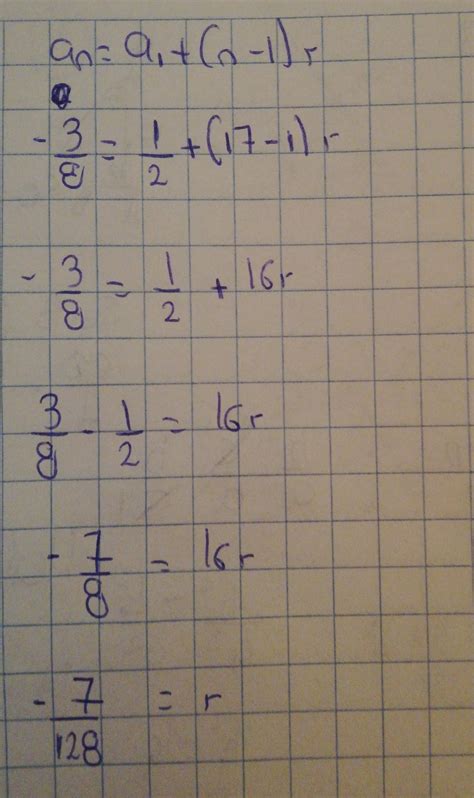 aₙ = a₁ + (n - 1) r
- 3/8 = 1/2 + (17 - 1) r
- 3/8 = 1/2 + 16r
3/8 - 1/2 = 16r
- 7/8 = 16r
- 7/128 = r